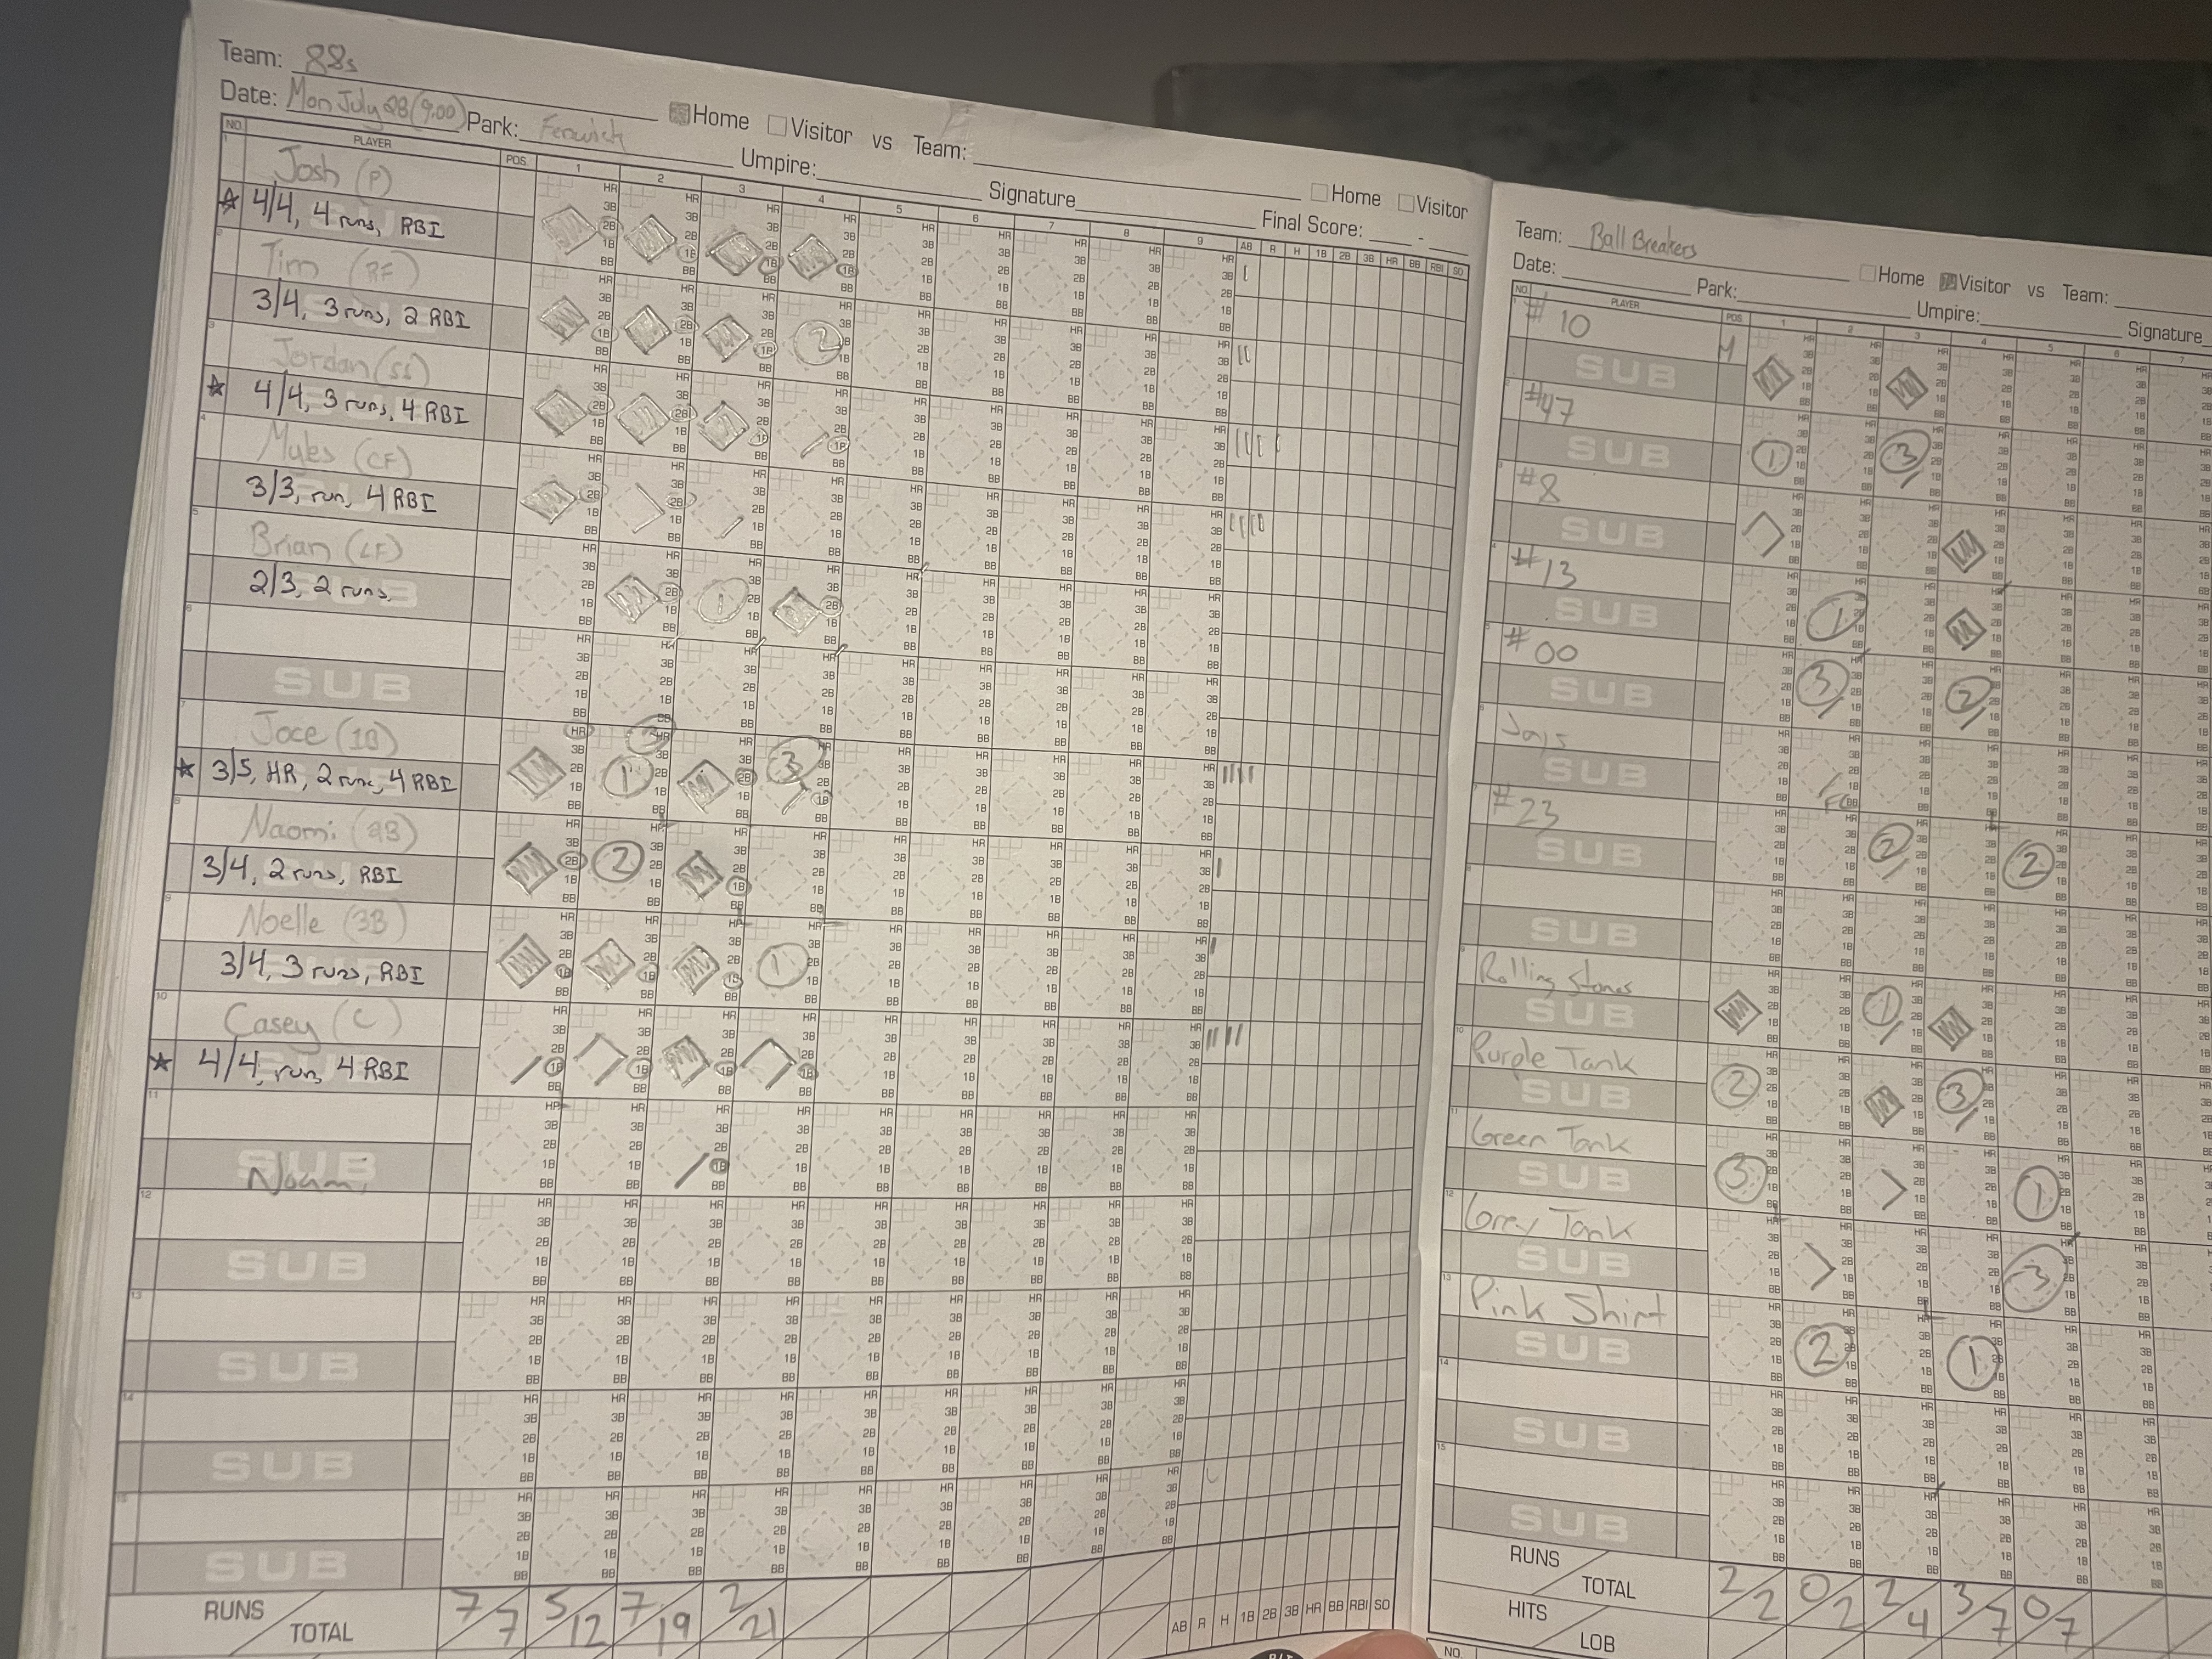 Team: 88s
Date: Mon July 28 (9:00) Park: Fenwick Home Visitor vs Team:
Umpire: Signature Home Visitor
Final Score: -
NO. PLAYER POS. 1 2 3 4 5 6 7 8 9 AB R H 1B 2B 3B HR BB RBI SO
1 Josh (P)
☆ 4/4, 4 runs, RBI
2 Tim (RF)
3/4, 3 runs, 2 RBI
3 Jordan (SS)
★ 4/4, 3 runs, 4 RBI
4 Myles (CF)
3/3, run, 4 RBI
5 Brian (LF)
2/3, 2 runs,
6
SUB
7 Joce (1B)
★ 3/5, HR, 2 runs, 4 RBI
8 Naomi (2B)
3/4, 2 runs, RBI
9 Noelle (3B)
3/4, 3 runs, RBI
10 Casey (C)
★ 4/4, run, 4 RBI
11
SUB
Naomi
12
SUB
13
SUB
14
SUB
15
SUB
RUNS TOTAL 7/7 5/12 7/19 2/21
AB R H 1B 2B 3B HR BB RBI SO
Team: Ball Breakers
Date: Park: Home Visitor vs Team:
Umpire: Signature
NO. PLAYER POS. 1 2 3 4 5 6 7
1 #10 M
SUB
2 #47
SUB
3 #8
SUB
4 #13
SUB
5 #00
SUB
6 Jays
SUB
FC
7 #23
SUB
8
SUB
9 Rolling Stones
SUB
10 Purple Tank
SUB
11 Green Tank
SUB
12 Grey Tank
SUB
13 Pink Shirt
SUB
14
SUB
15
SUB
RUNS TOTAL 2/2 0/2 2/4 3/7 0/7
HITS LOB
NO.